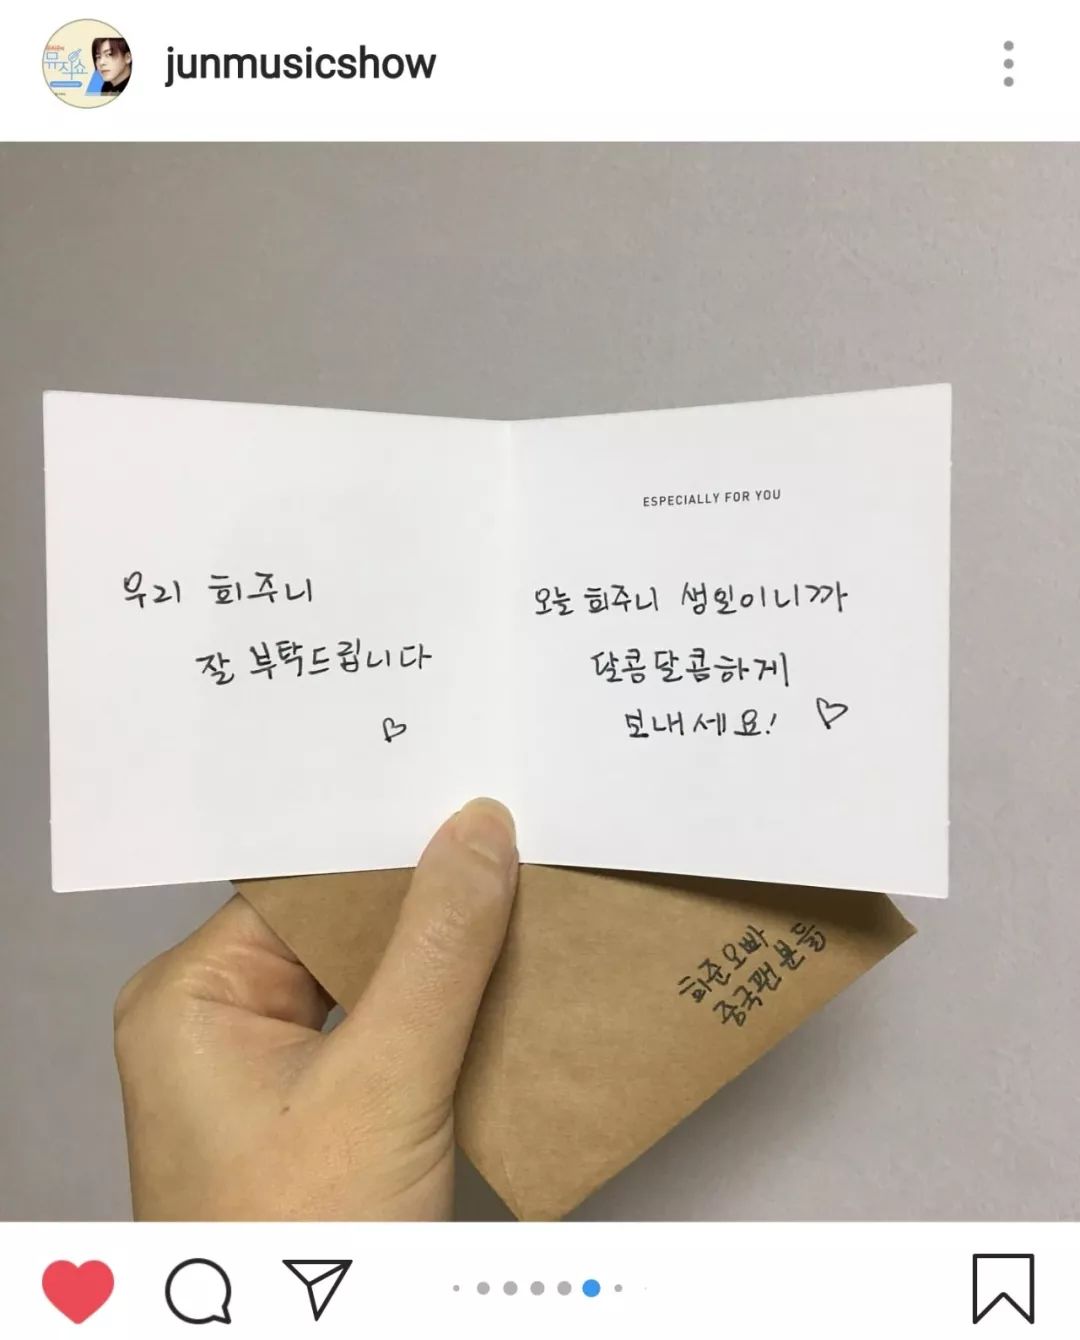 junmusicshow
뮤직쇼
우리 희주니
잘 부탁드립니다
ESPECIALLY FOR YOU
오늘 희주니 생일이니까
달콤달콤하게
보내세요!
희준오빠
중국팬분들